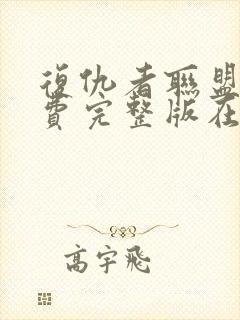 復仇者聯盟
費完整版在
高宇飛